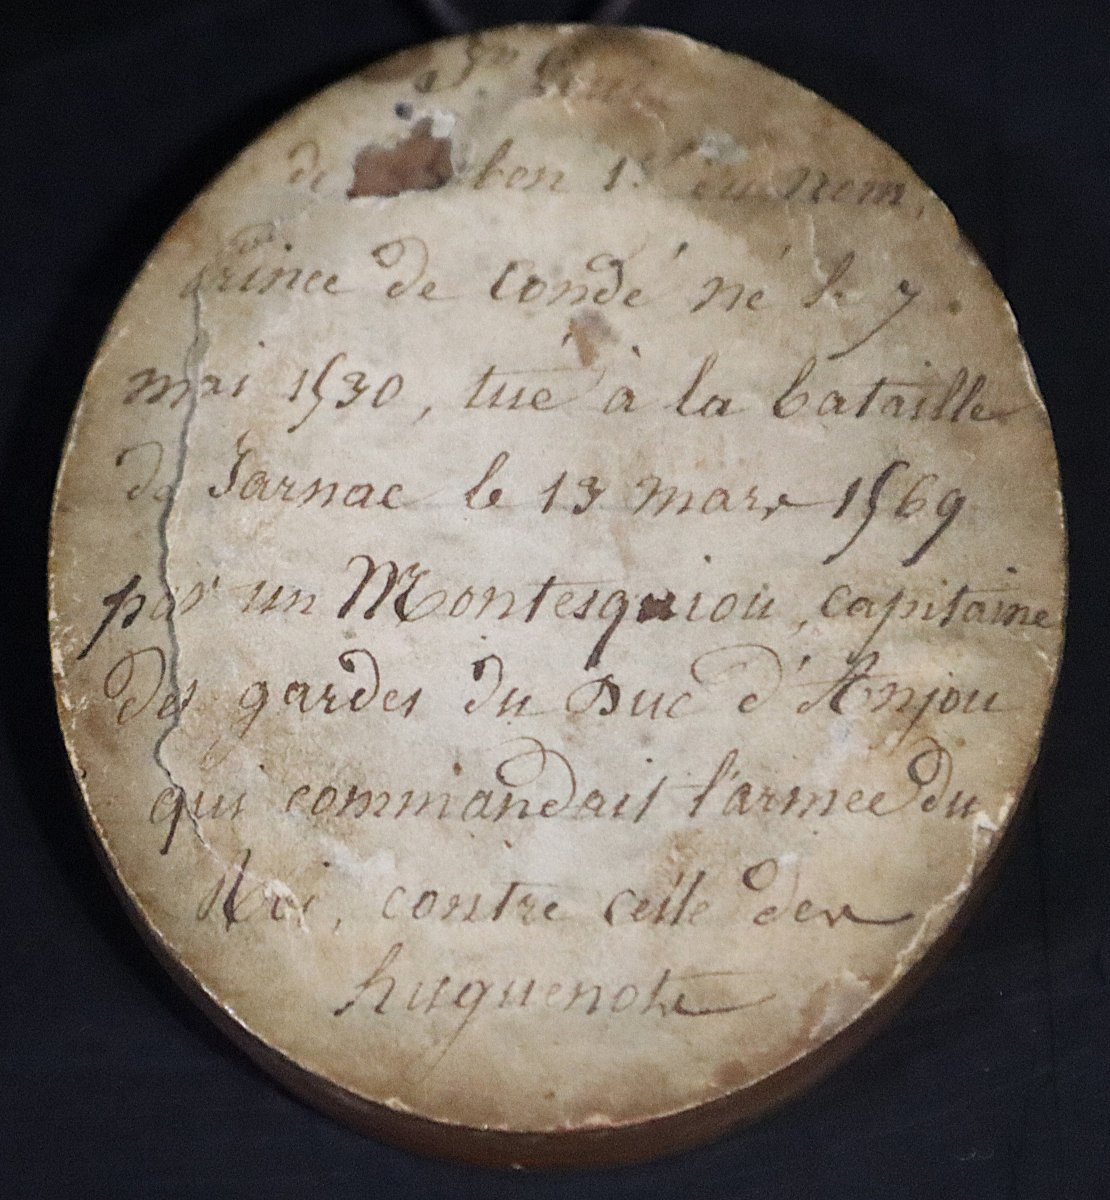 de bon 1er du nom,
Prince de Condé né le 7.
mai 1530, tué à la bataille
de Jarnac le 13 mars 1569
par un Montesquiou, capitaine
des gardes du Duc d'Anjou
qui commandait l'armée du
Roi, contre celle des
huguenots